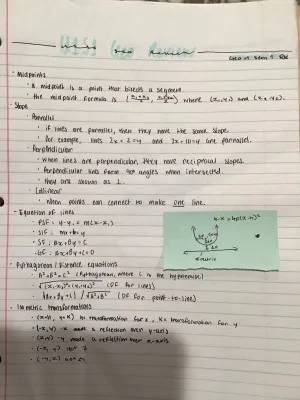 Geo Review
Geo H Sem 1
- Midpoints
• A midpoint is a point that bisects a segment.
• The midpoint formula is (x₁+x₂/2, y₁+y₂/2) where (x₁,y₁) and (x₂,y₂).
- Slope
• Parallel
• If lines are parallel, then they have the same slope.
• For example, lines and are parallel.
• Perpendicular
• When lines are perpendicular, they have reciprocal slopes.
• Perpendicular lines form 90° angles when intersected.
• They are shown as ⊥.
• Collinear
• When points can connect to make one line.
- Equation of lines
• PSF: y-y₁ = m(x-x₁)
• SIF: mx+b=y
• SF: Ax+By=C
• GF: Ax+By+C=0
- Pythagorean / Distance equations
• A²+B²=C² (Pythagorean, where C is the hypotenuse)
• √(x₁-x₂)²+(y₁-y₂)² (DF for lines)
• |Ax+By+C| / √A²+B² (DF for point-to-line)
- Isometric transformations
• (x+h, y+k) h= transformation for x, k= transformation for y
• (-x,y) -x made a reflection over y-axis
• (x,-y) -y made a reflection over x-axis